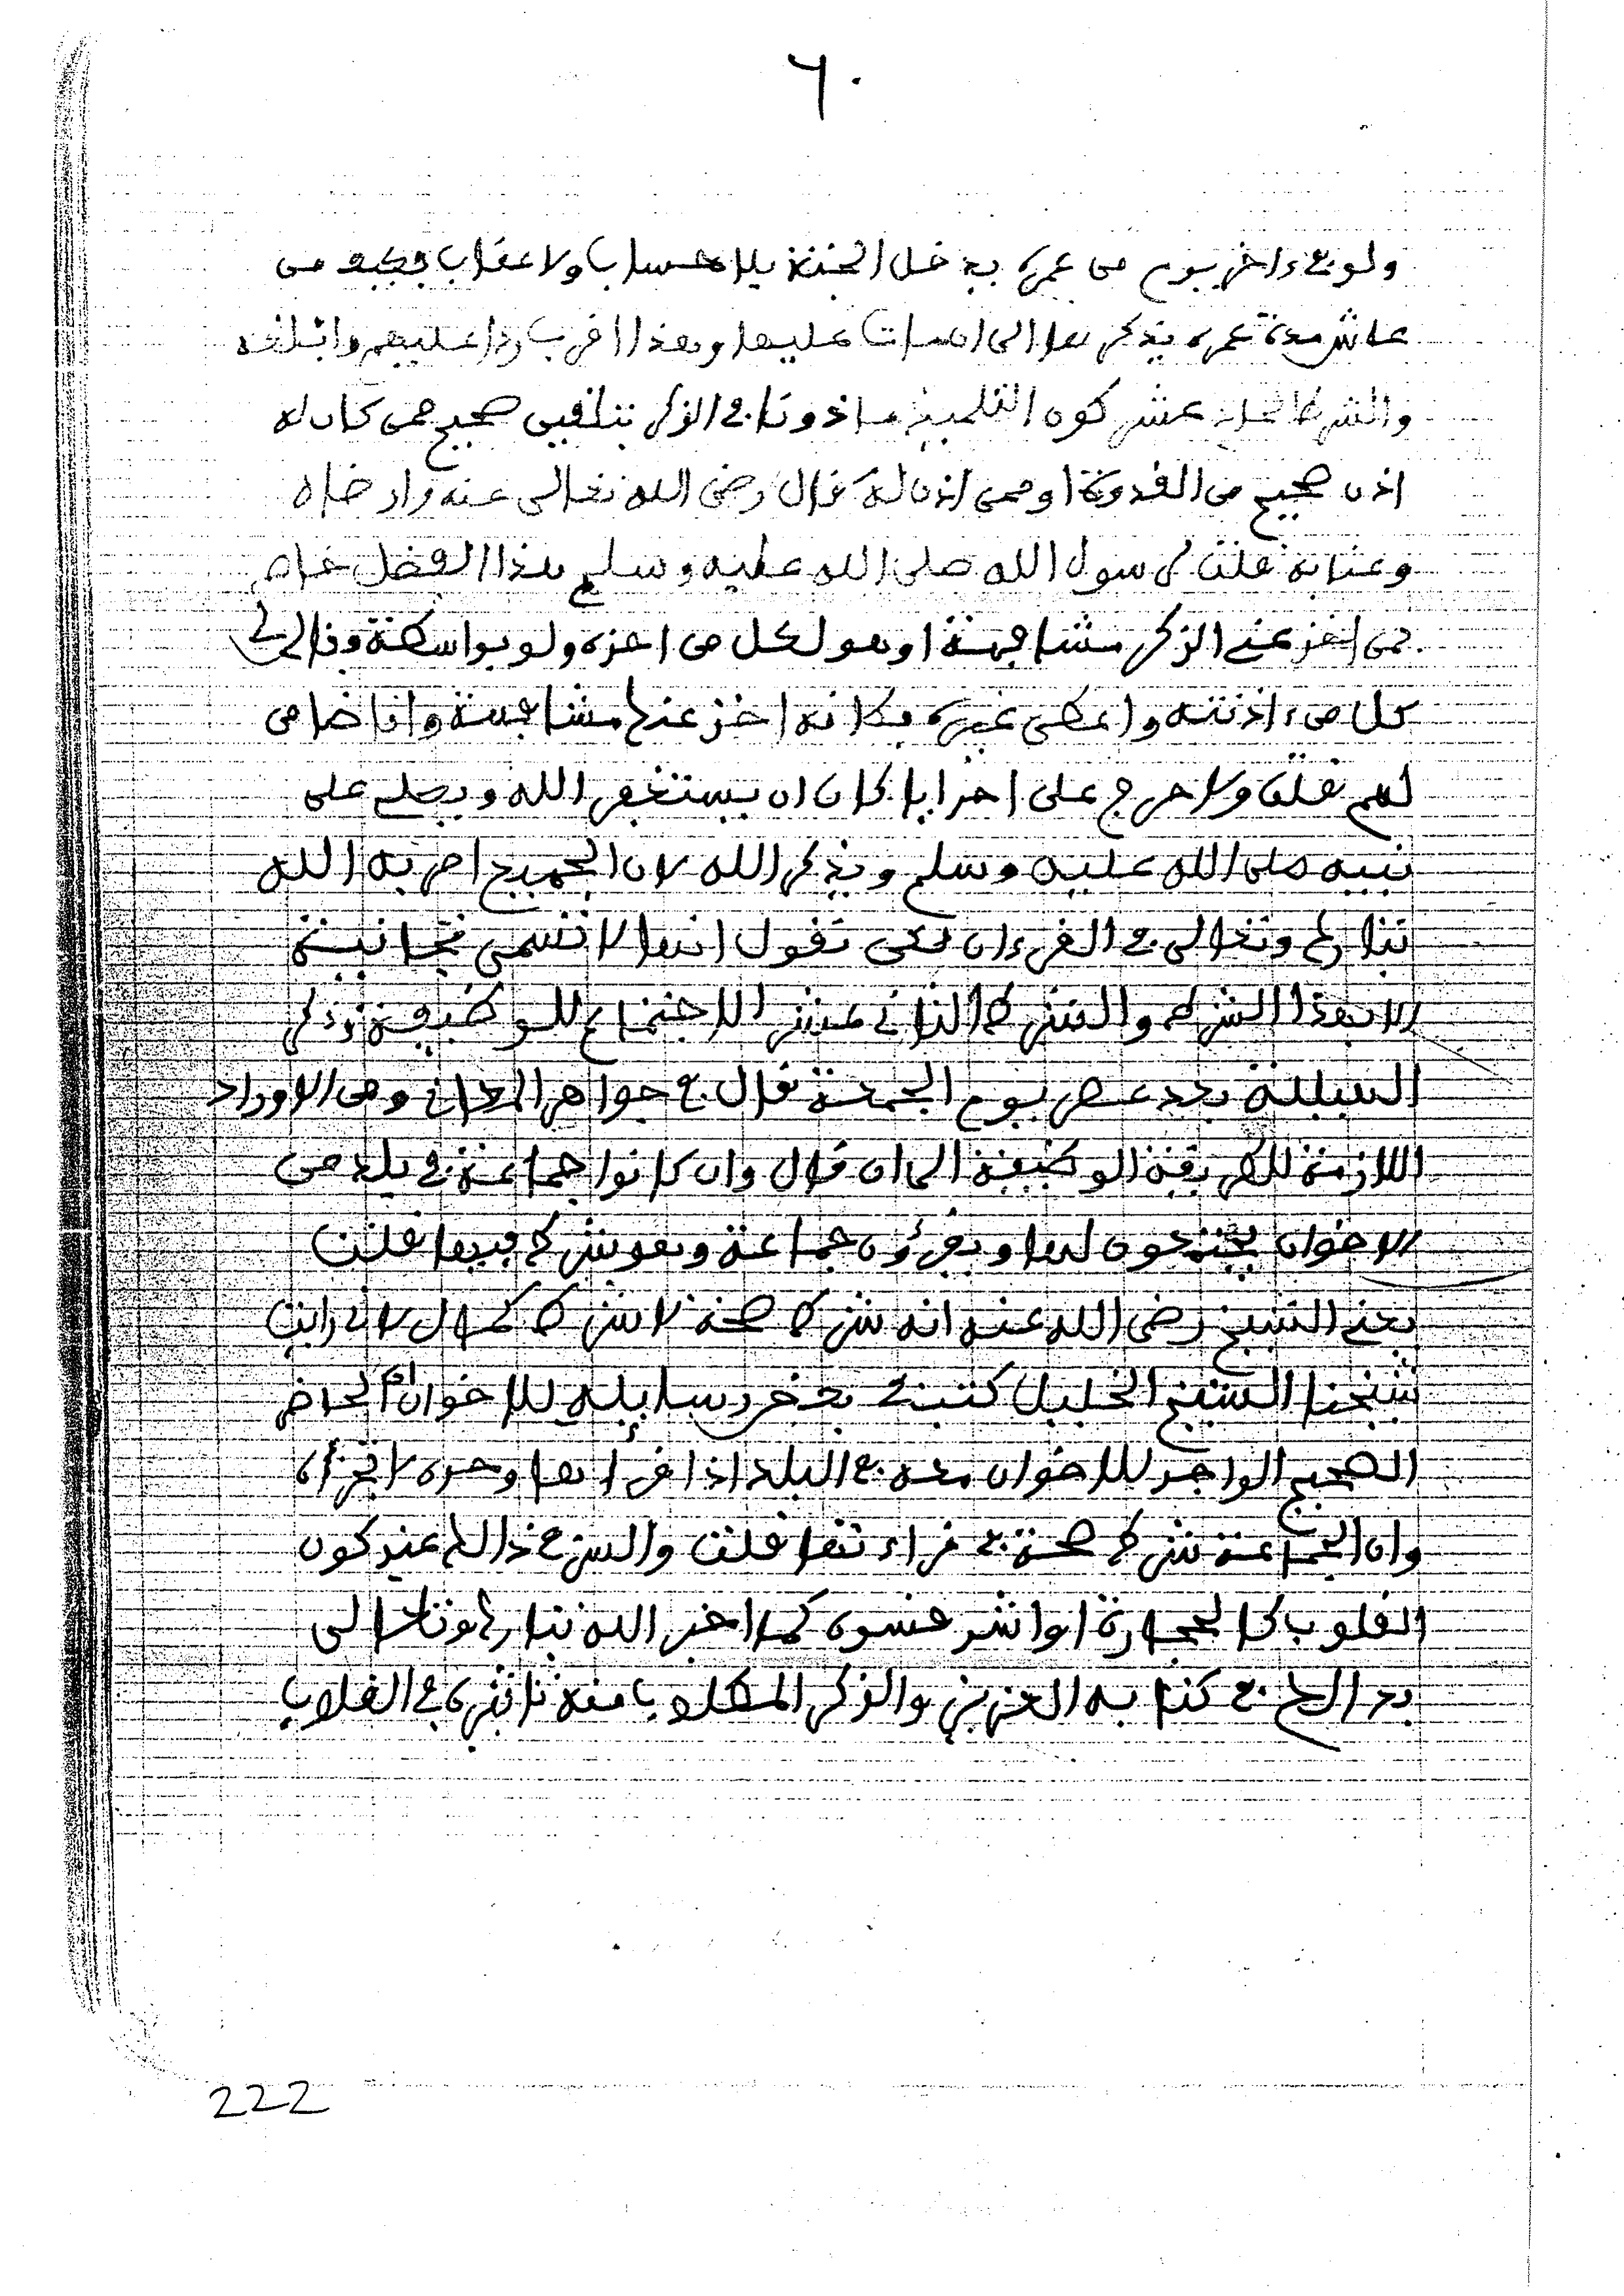 ٦٠
ولو في ءاخر يوم من عمره يدخل الجنة بلا حساب ولا عقاب فكيف من
عاش مدة عمره يذكرها الى ان مات عليها وهذا اقرب ردا عليهم وابلغه
والشرط الحادي عشر كون التلميذ ماذونا في الذكر بتلقين صحيح ممن كان له
اذن صحيح من القدوة او ممن اذن له قال رضي الله تعالى عنه وارضاه
وعنا به قلت لرسول الله صلى الله عليه وسلم هذا الفضل خاص
بمن اخذ عني الذكر مشافهة او هو لكل من اخذه ولو بواسطة وقال لي
كل من اذنته واعطى غيره فكانه اخذ عنك مشافهة وانا ضامن
لهم قلت ولا حرج على احد ايا كان ان يستغفر الله ويصلي على
نبيه صلى الله عليه وسلم ويذكر الله لان الجميع امر به الله
تبارك وتعالى في القرءان نعم تقول انها لا تسمى تجانية
الا بهذا الشرط والشرط الثاني عشر الاجتماع للوظيفة وذكر
الهيللة بعد عصر يوم الجمعة قال في جواهر المعاني ومن الاوراد
اللازمة للطريقة الوظيفة الى ان قال وان كانوا جماعة في بلد من
الاخوان يجتمعون لها ويقرءون جماعة وهو شرط فيها قلت
يعني الشيخ رضي الله عنه انه شرط صحة لا شرط كمال لاني رايت
شيخنا الشيخ الخليل كتبت في بعض رسايله للاخوان ان الحاضر
الصحيح الواجد للاخوان معه في البلد اذا قراها وحده لا تجزئه
وان الجماعة شرط صحة في قراءتها قلت والسر في ذالك عند كون
القلوب كالحجارة او اشد قسوة كما اخبر الله تبارك وتعالى
بذالك في كتابه العزيز والذكر المطلوب منه تاثيره في القلوب
222